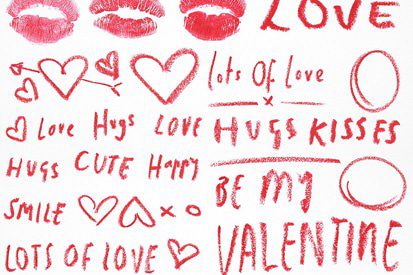 LOVE
lots of love
x
love Hugs LOVE
HUGS KISSES
HUGS CUTE Happy
BE My
SMILE x o
VALENTINE
LOTS OF LOVE